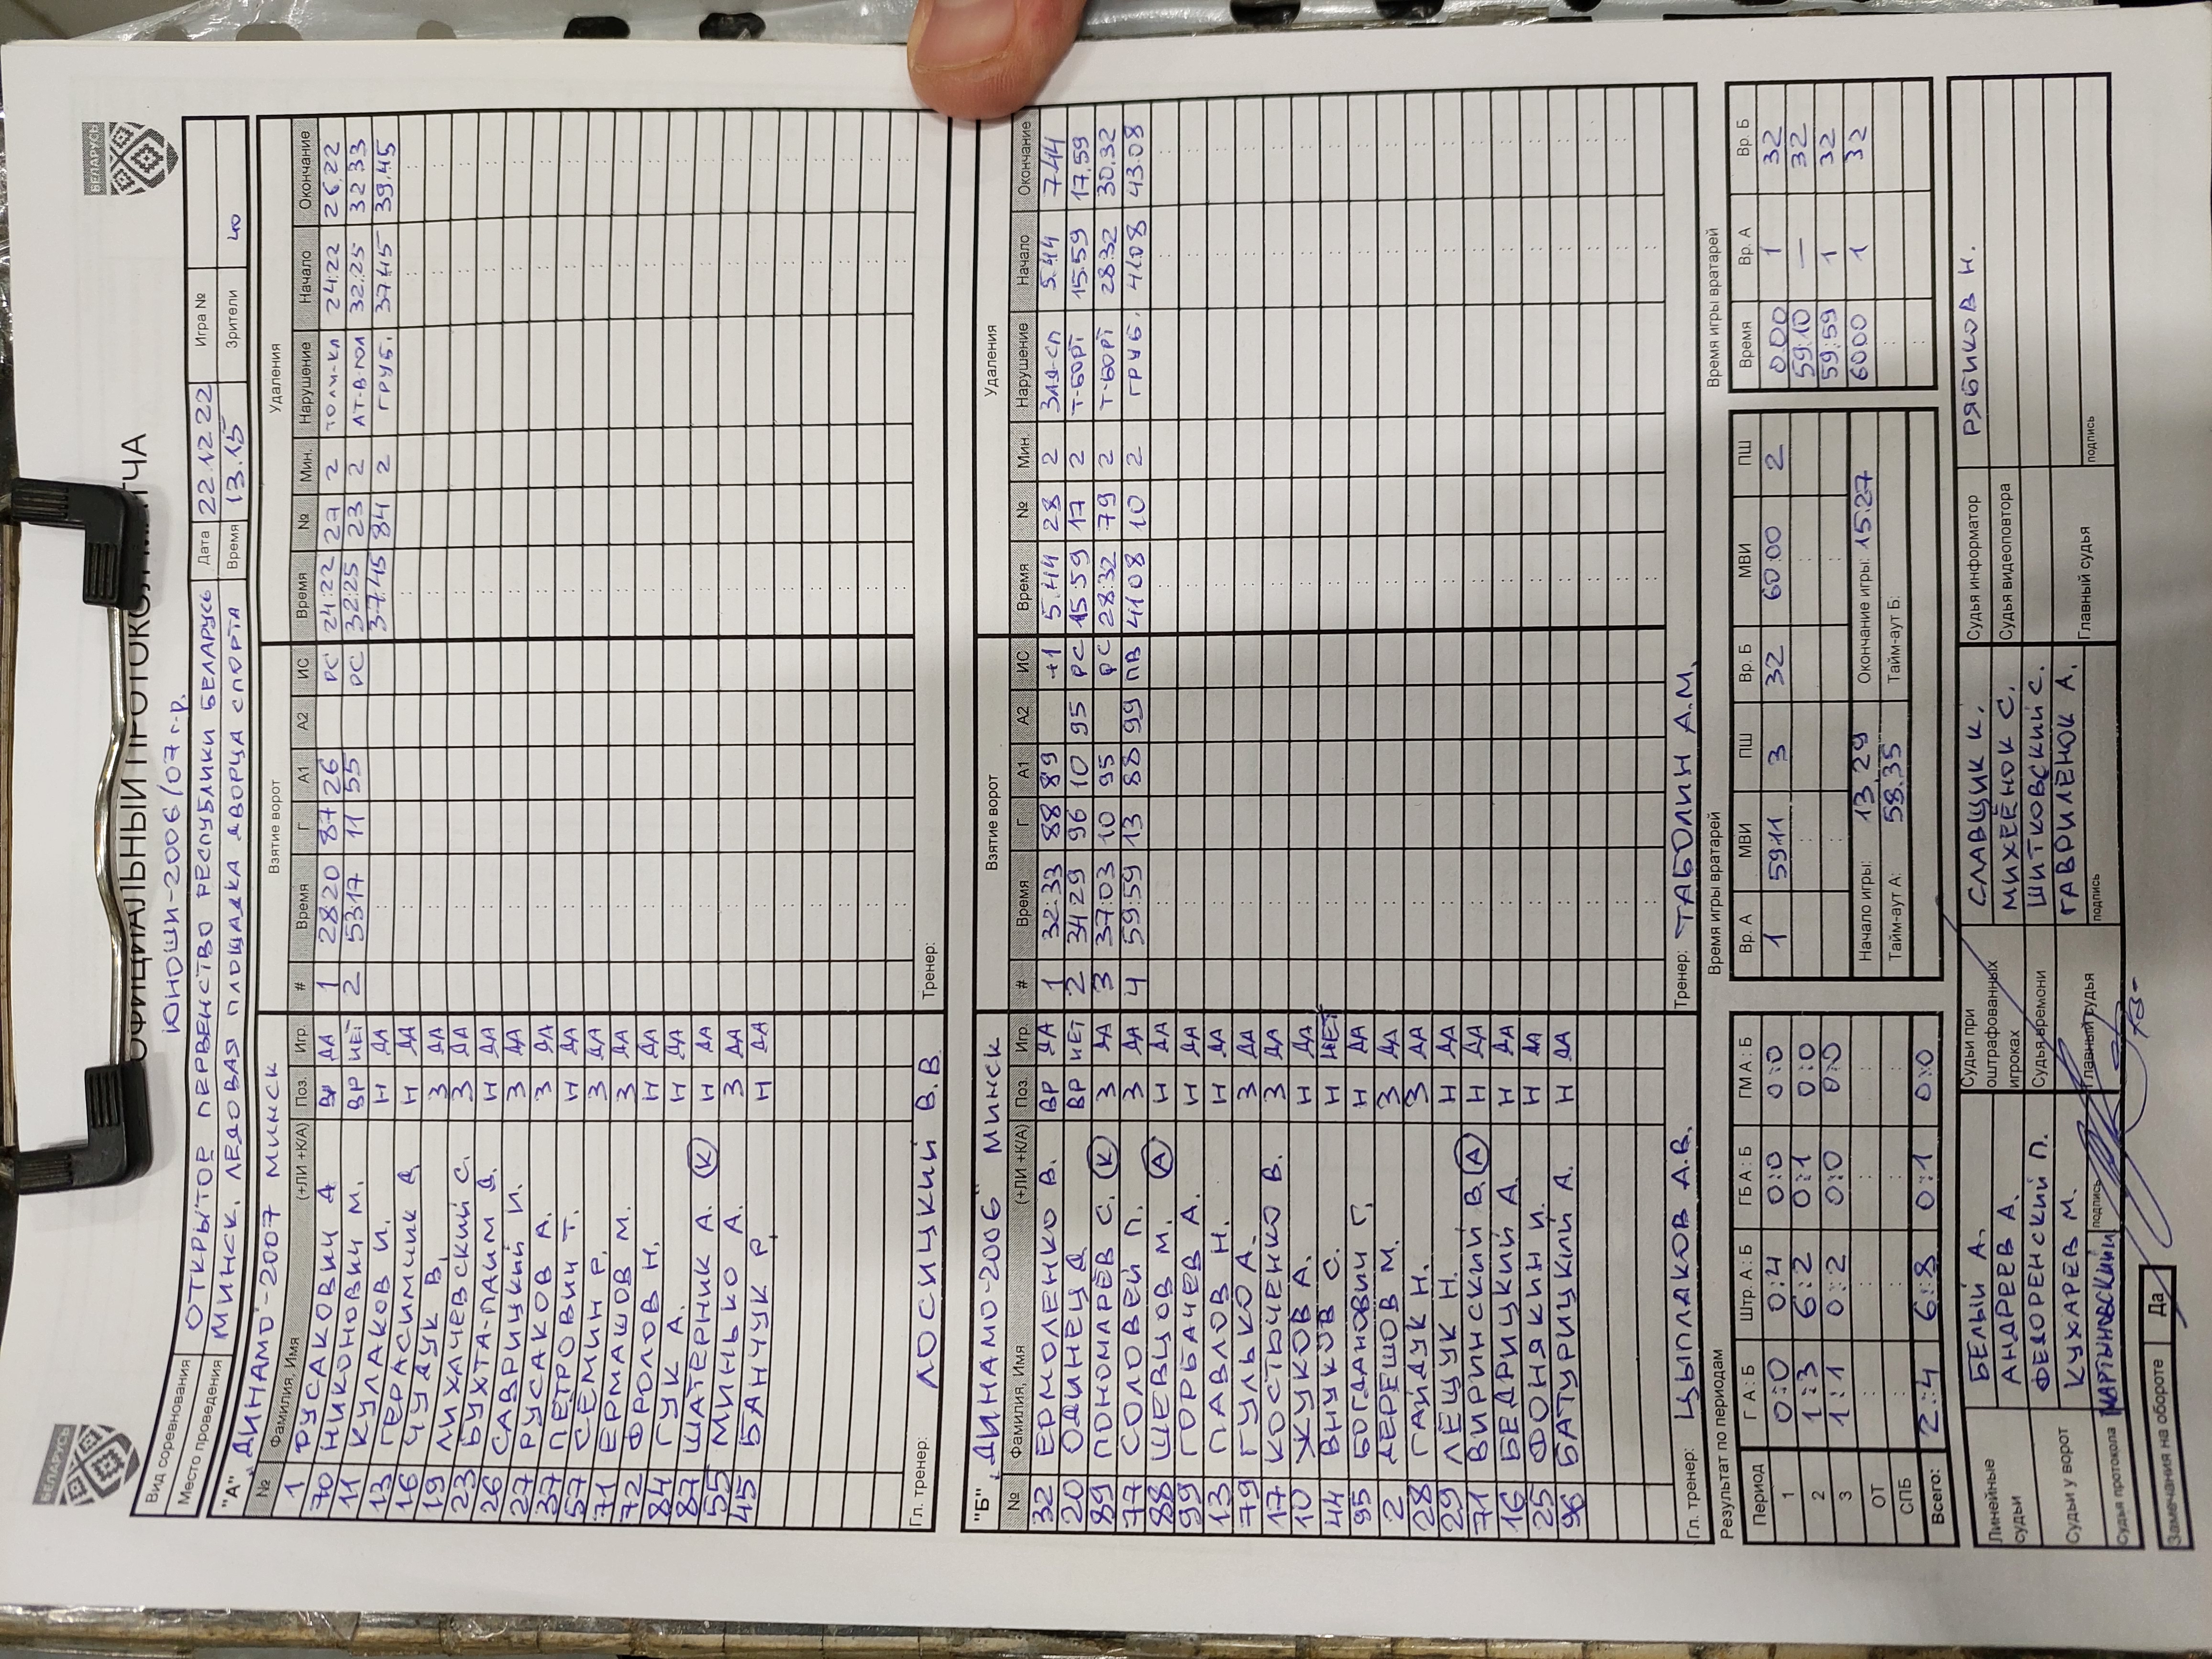 БЕЛАРУСЬ
БЕЛАРУСЬ
ОФИЦИАЛЬНЫЙ ПРОТОКОЛ МАТЧА
ЮНОШИ-2006/07 г.р.
Вид соревнования ОТКРЫТОЕ ПЕРВЕНСТВО РЕСПУБЛИКИ БЕЛАРУСЬ Дата 22.12.22 Игра №
Место проведения МИНСК. ЛЕДОВАЯ ПЛОЩАДКА ДВОРЦА СПОРТА Время 13.15 Зрители 40
"А" „ДИНАМО"-2007 МИНСК Взятие ворот Удаления
№ Фамилия, Имя (+ЛИ +К/А) Поз. Игр. # Время Г А1 А2 ИС Время № Мин. Нарушение Начало Окончание
1 РУСАКОВИЧ Д ВР ДА 1 28 20 87 26 РС 24:22 27 2 ТОЛЧ-КЛ 24:22 26.22
70 НИКОНОВИЧ М. ВР НЕТ 2 53 17 11 55 РС 32:25 23 2 АТ-В-ГОЛ 32.25 32 33
11 КУЛАКОВ И. Н ДА 37.45 84 2 ГРУБ. 37.45 39.45
13 ГЕРАСИМЧИК Д Н ДА
16 ЧУДУК В. З ДА
19 ЛИХАЧЕВСКИЙ С. З ДА
23 БУХТА-ПАИМ Д. Н ДА
26 САВРИЦКИЙ И. З ДА
27 РУСАКОВ А. З ДА
37 ПЕТРОВИЧ Т. Н ДА
57 СЕМИН Р. З ДА
71 ЕРМАШОВ М. З ДА
72 ФРОЛОВ Н. Н ДА
84 ГУК А. Н ДА
87 ШАТЕРНИК А. К Н ДА
55 МИНЬКО А. З ДА
45 БАНЧУК Р. Н ДА
Гл. тренер: ЛОСИЦКИЙ В.В Тренер:
"Б" „ДИНАМО-2006" МИНСК Взятие ворот Удаления
№ Фамилия, Имя (+ЛИ +К/А) Поз. Игр. # Время Г А1 А2 ИС Время № Мин. Нарушение Начало Окончание
32 ЕРМОЛЕНКО В. ВР ДА 1 32:33 88 89 +1 5.44 28 2 ЗАД-СП 5.44 7.44
20 ОДИНЕЦ Д. ВР НЕТ 2 34 29 96 10 95 РС 15.59 17 2 Т-БОРТ 15.59 17.59
89 ПОНОМАРЁВ С. К З ДА 3 37:03 10 95 РС 28:32 79 2 Т-БОРТ 28:32 30.32
77 СОЛОВЕЙ П. З ДА 4 59:59 13 88 99 ПВ 41 08 10 2 ГРУБ. 41.08 43.08
88 ШЕВЦОВ М. А Н ДА
99 ГОРБАЧЕВ А. Н ДА
13 ПАВЛОВ Н. Н ДА
79 ГУЛЬКО А. З ДА
17 КОСТЮЧЕНКО В. З ДА
10 ЖУКОВ А. Н ДА
44 ВНУКОВ С. Н НЕТ
95 БОГДАНОВИЧ Г. Н ДА
2 ДЕРЕШОВ М. З ДА
28 ГАЙДУК Н. З ДА
29 ЛЕЩУК Н. Н ДА
71 ВИРИНСКИЙ В. А Н ДА
16 БЕДРИЦКИЙ А. Н ДА
25 ФОНЯКИН И. Н ДА
96 БАТУРИЦКИЙ А. Н ДА
Гл. тренер: ЦЫПЛАКОВ А.В. Тренер: ТАБОЛИН А.М.
Результат по периодам Время игры вратарей Время игры вратарей
Период Г А : Б Штр. А : Б ГБ А : Б ГМ А : Б Вр. А МВИ ПШ Вр. Б МВИ ПШ Время Вр. А Вр. Б
1 0:0 0:4 0:0 0:0 1 59:11 3 32 60:00 2 0.00 1 32
2 1:3 6:2 0:1 0:0 59:10 — 32
3 1:1 0:2 0:0 0:0 59:59 1 32
ОТ Начало игры: 13.29 Окончание игры: 15.27 60 00 1 32
СПБ Тайм-аут А: 58.35 Тайм-аут Б:
Всего: 2:4 6:8 0:1 0:0
Линейные судьи БЕЛЫЙ А. Судьи при оштрафованных игроках СЛАВЩИК К. Судья информатор РЯБИКОВ Н.
АНДРЕЕВ А. МИХЕЁНОК С. Судья видеоповтора
Судьи у ворот ФЕДОРЕНСКИЙ П. Судья времени ШИТКОВСКИЙ С.
КУХАРЕВ М. Главный судья ГАВРИЛЁНОК А. Главный судья
Судья протокола МАРТЫНОВСКИЙ подпись подпись подпись
Замечания на обороте Да